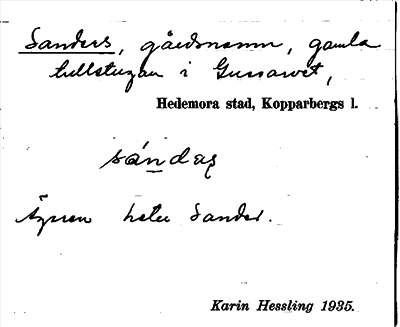 Sanders, gårdsnamn, gamla
tullstugan i Gussarvet,
Hedemora stad, Kopparbergs l.
sándaş
Ägaren heter Sander.
Karin Hessling 1935.